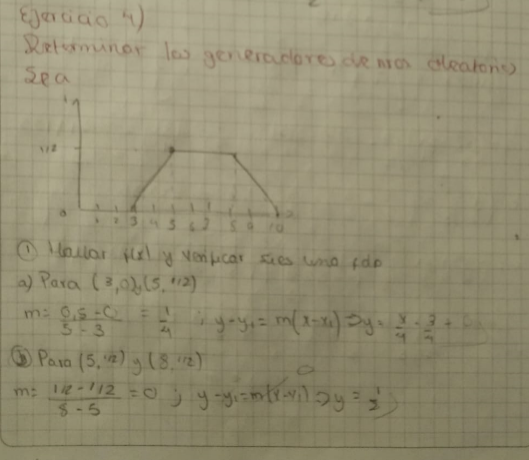 Ejercicio 4)
Determinar los generadores de nros aleatorios
Sea
1
1/2
0 1 2 3 4 5 6 7 8 9 10
① Hallar f(x) y verificar si es una fdp
a) Para (3,0), (5, 1/2)
m = 0,5 - 0 / 5 - 3 = 1/4 ; y - y₁ = m(x - x₁) ⇒ y = x/4 - 3/4
ⓑ Para (5, 1/2) y (8, 1/2)
m = 1/2 - 1/2 / 8 - 5 = 0 ; y - y₁ = m(x - x₁) ⇒ y = 1/2